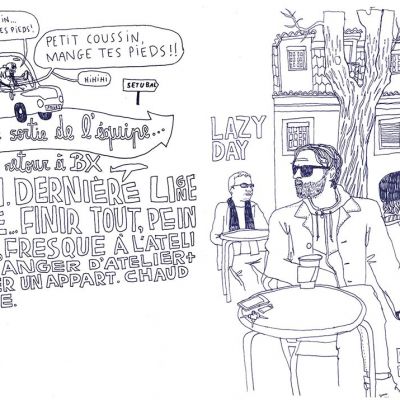 IN...
ES PIEDS!
PETIT COUSSIN,
MANGE TES PIEDS!!
HiHiHi
SETUBAL
sortie de l'équipe...
retour à BX
. DERNIÈRE LIGNE
E... FINIR TOUT, PEIN
FRESQUE À L'ATELI
ANGER D'ATELIER+
ER UN APPART. CHAUD
E.
LAZY
DAY